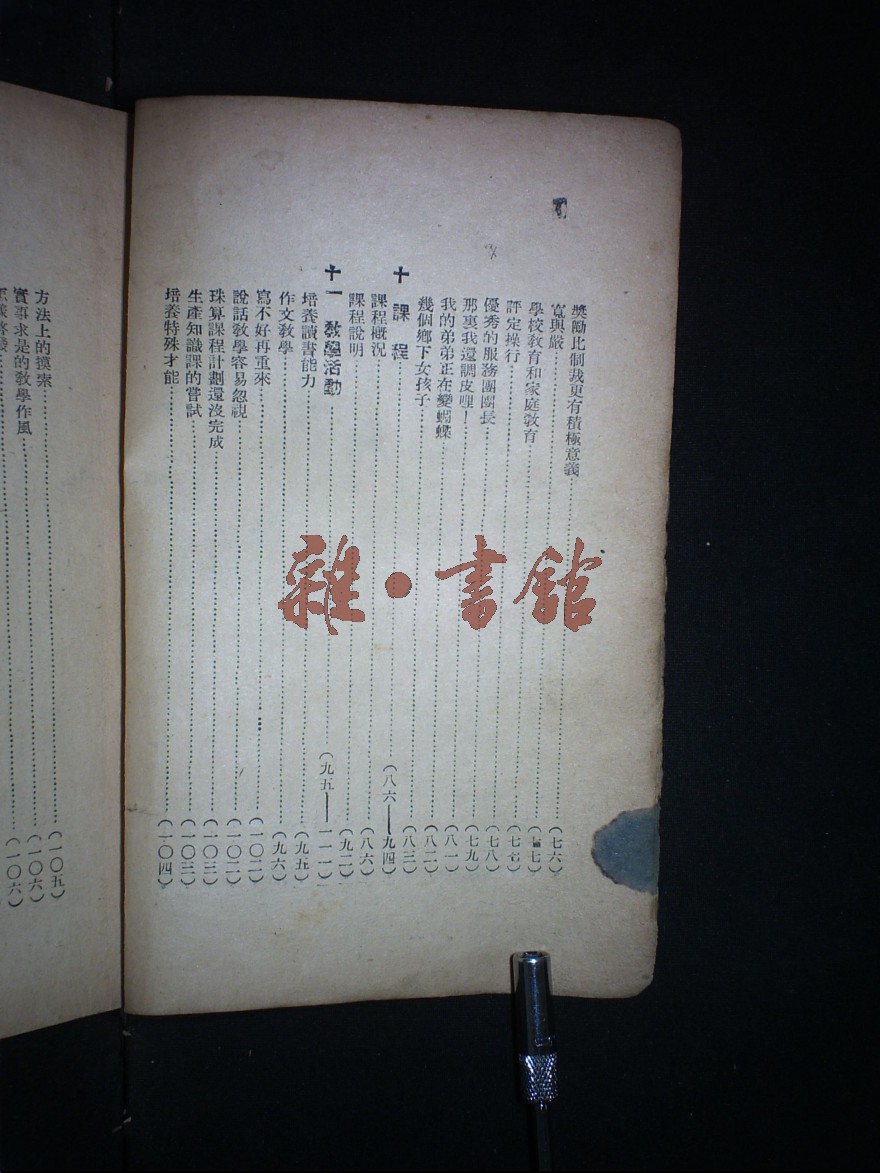 獎勵比制裁更有積極意義……(七六)
寬與嚴……(七七)
學校教育和家庭教育……(七七)
評定操行……(七八)
優秀的服務團團長……(七九)
那裏我還調皮哩!……(八一)
我的弟弟正在變蝴蝶……(八二)
幾個鄉下女孩子……(八三)
十 課程……(八六——九四)
課程概況……(八六)
課程說明……(九二)
十一 教學活動……(九五——一一一)
培養讀書能力……(九五)
作文教學……(九六)
寫不好再重來……(一〇二)
說話教學容易忽視……(一〇二)
珠算課程計劃還沒完成……(一〇三)
生產知識課的嘗試……(一〇三)
培養特殊才能……(一〇四)
方法上的摸索……(一〇五)
實事求是的教學作風……(一〇六)
(一〇六)
雜·書館